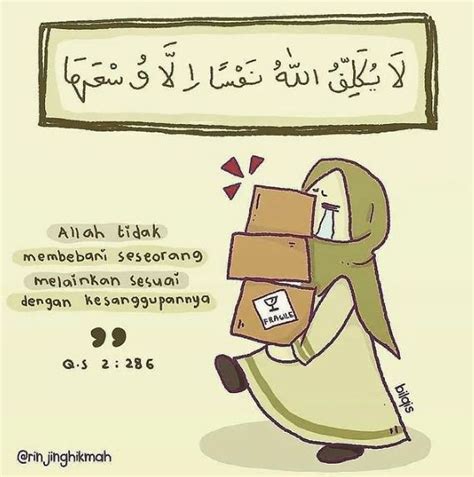 لَا يُكَلِّفُ اللّٰهُ نَفْسًا اِلَّا وُسْعَهَا
Allah tidak
membebani seseorang
melainkan sesuai
dengan kesanggupannya
”
Q.S 2 : 286
FRAGILE
bilqis
@rin_jinghikmah